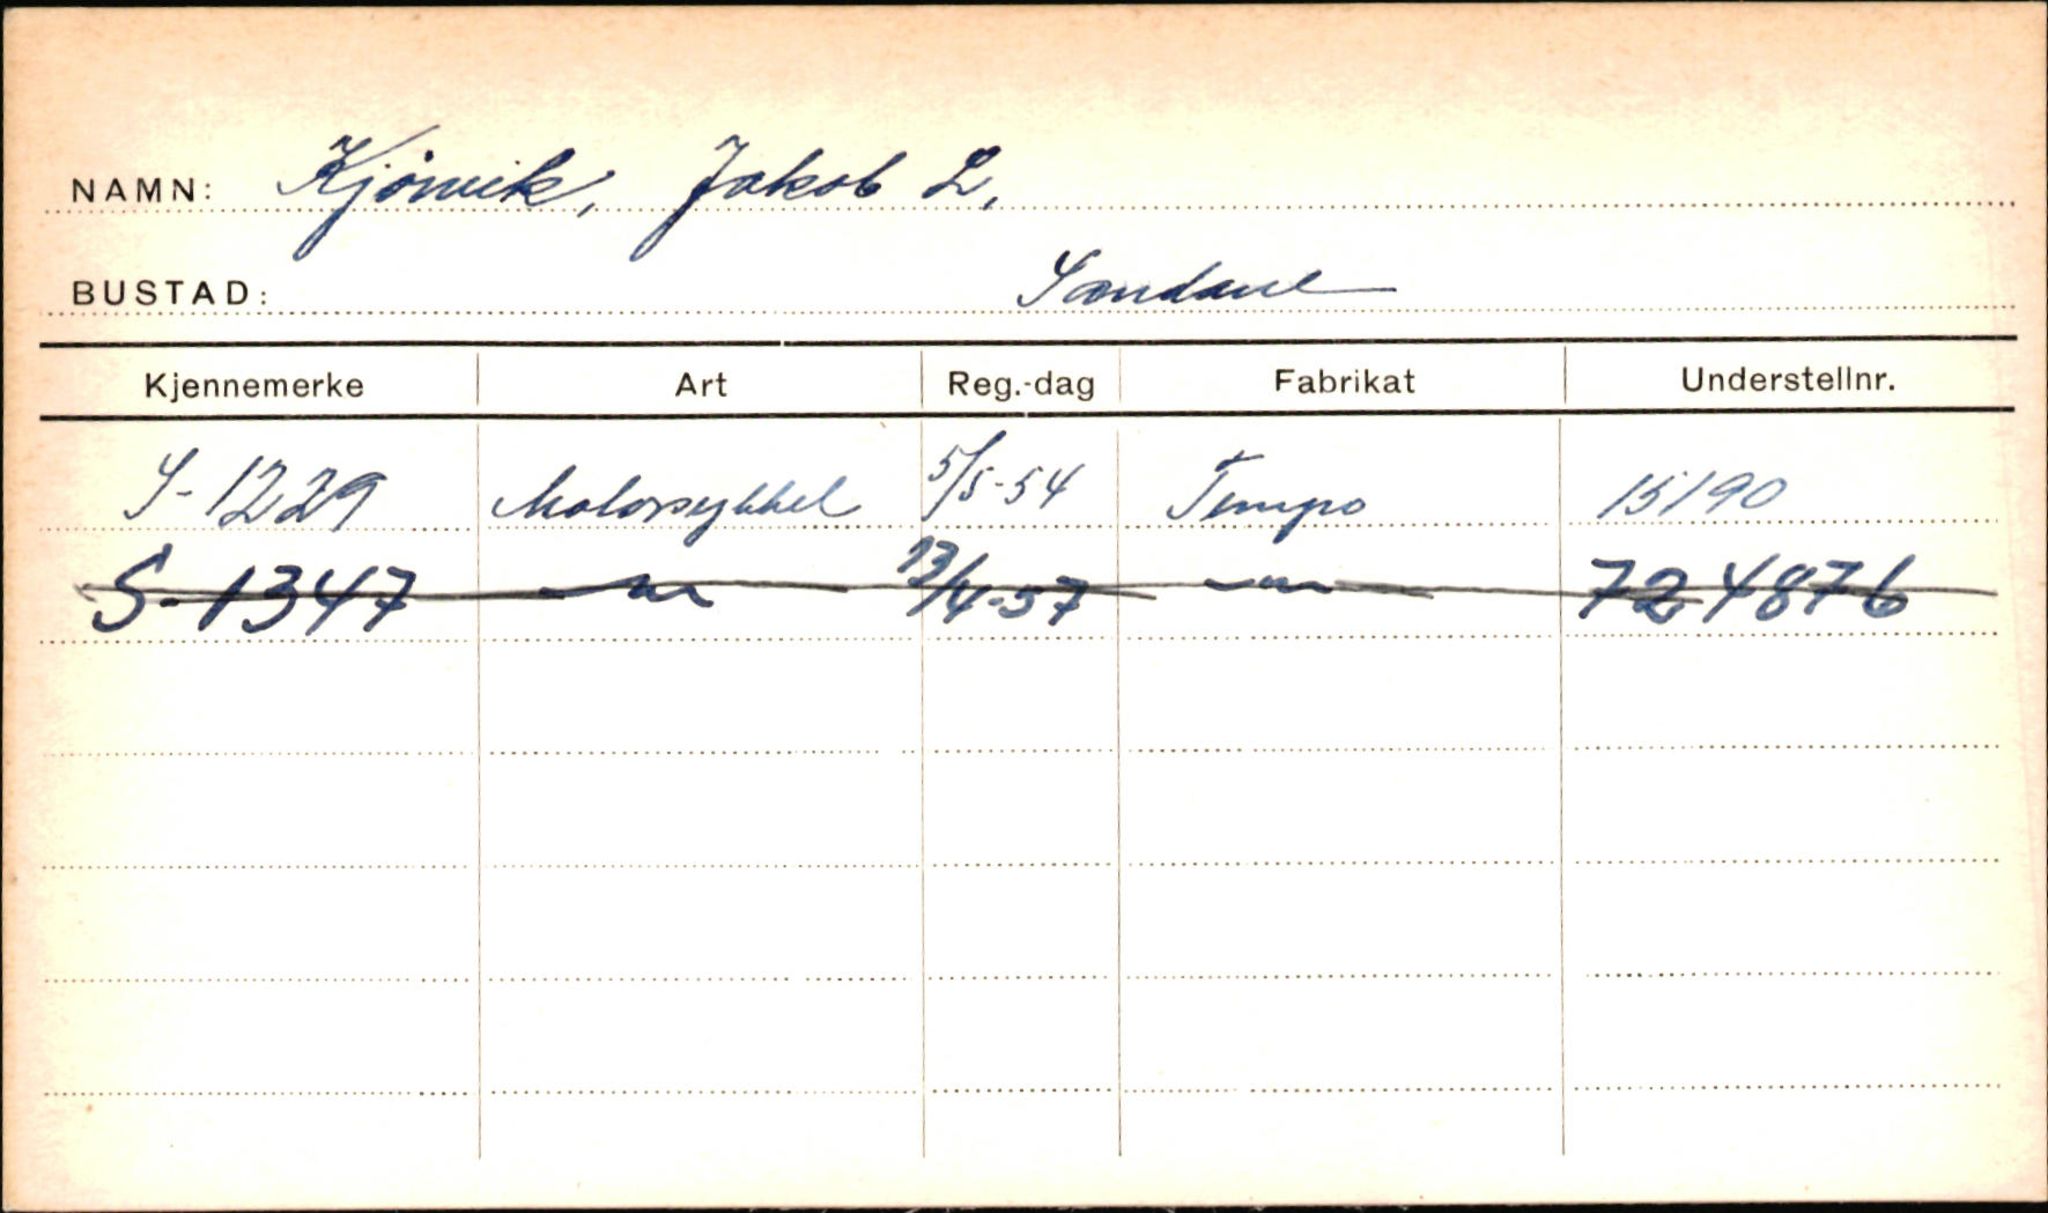 NAMN: Kjørvik, Jakob L.
BUSTAD: Sandane
Kjennemerke Art Reg.-dag Fabrikat Understellnr.
S-1229 Motorsykkel 5/5-54 Tempo 15190
S-1347 —"— 13/4-57 —"— 724876